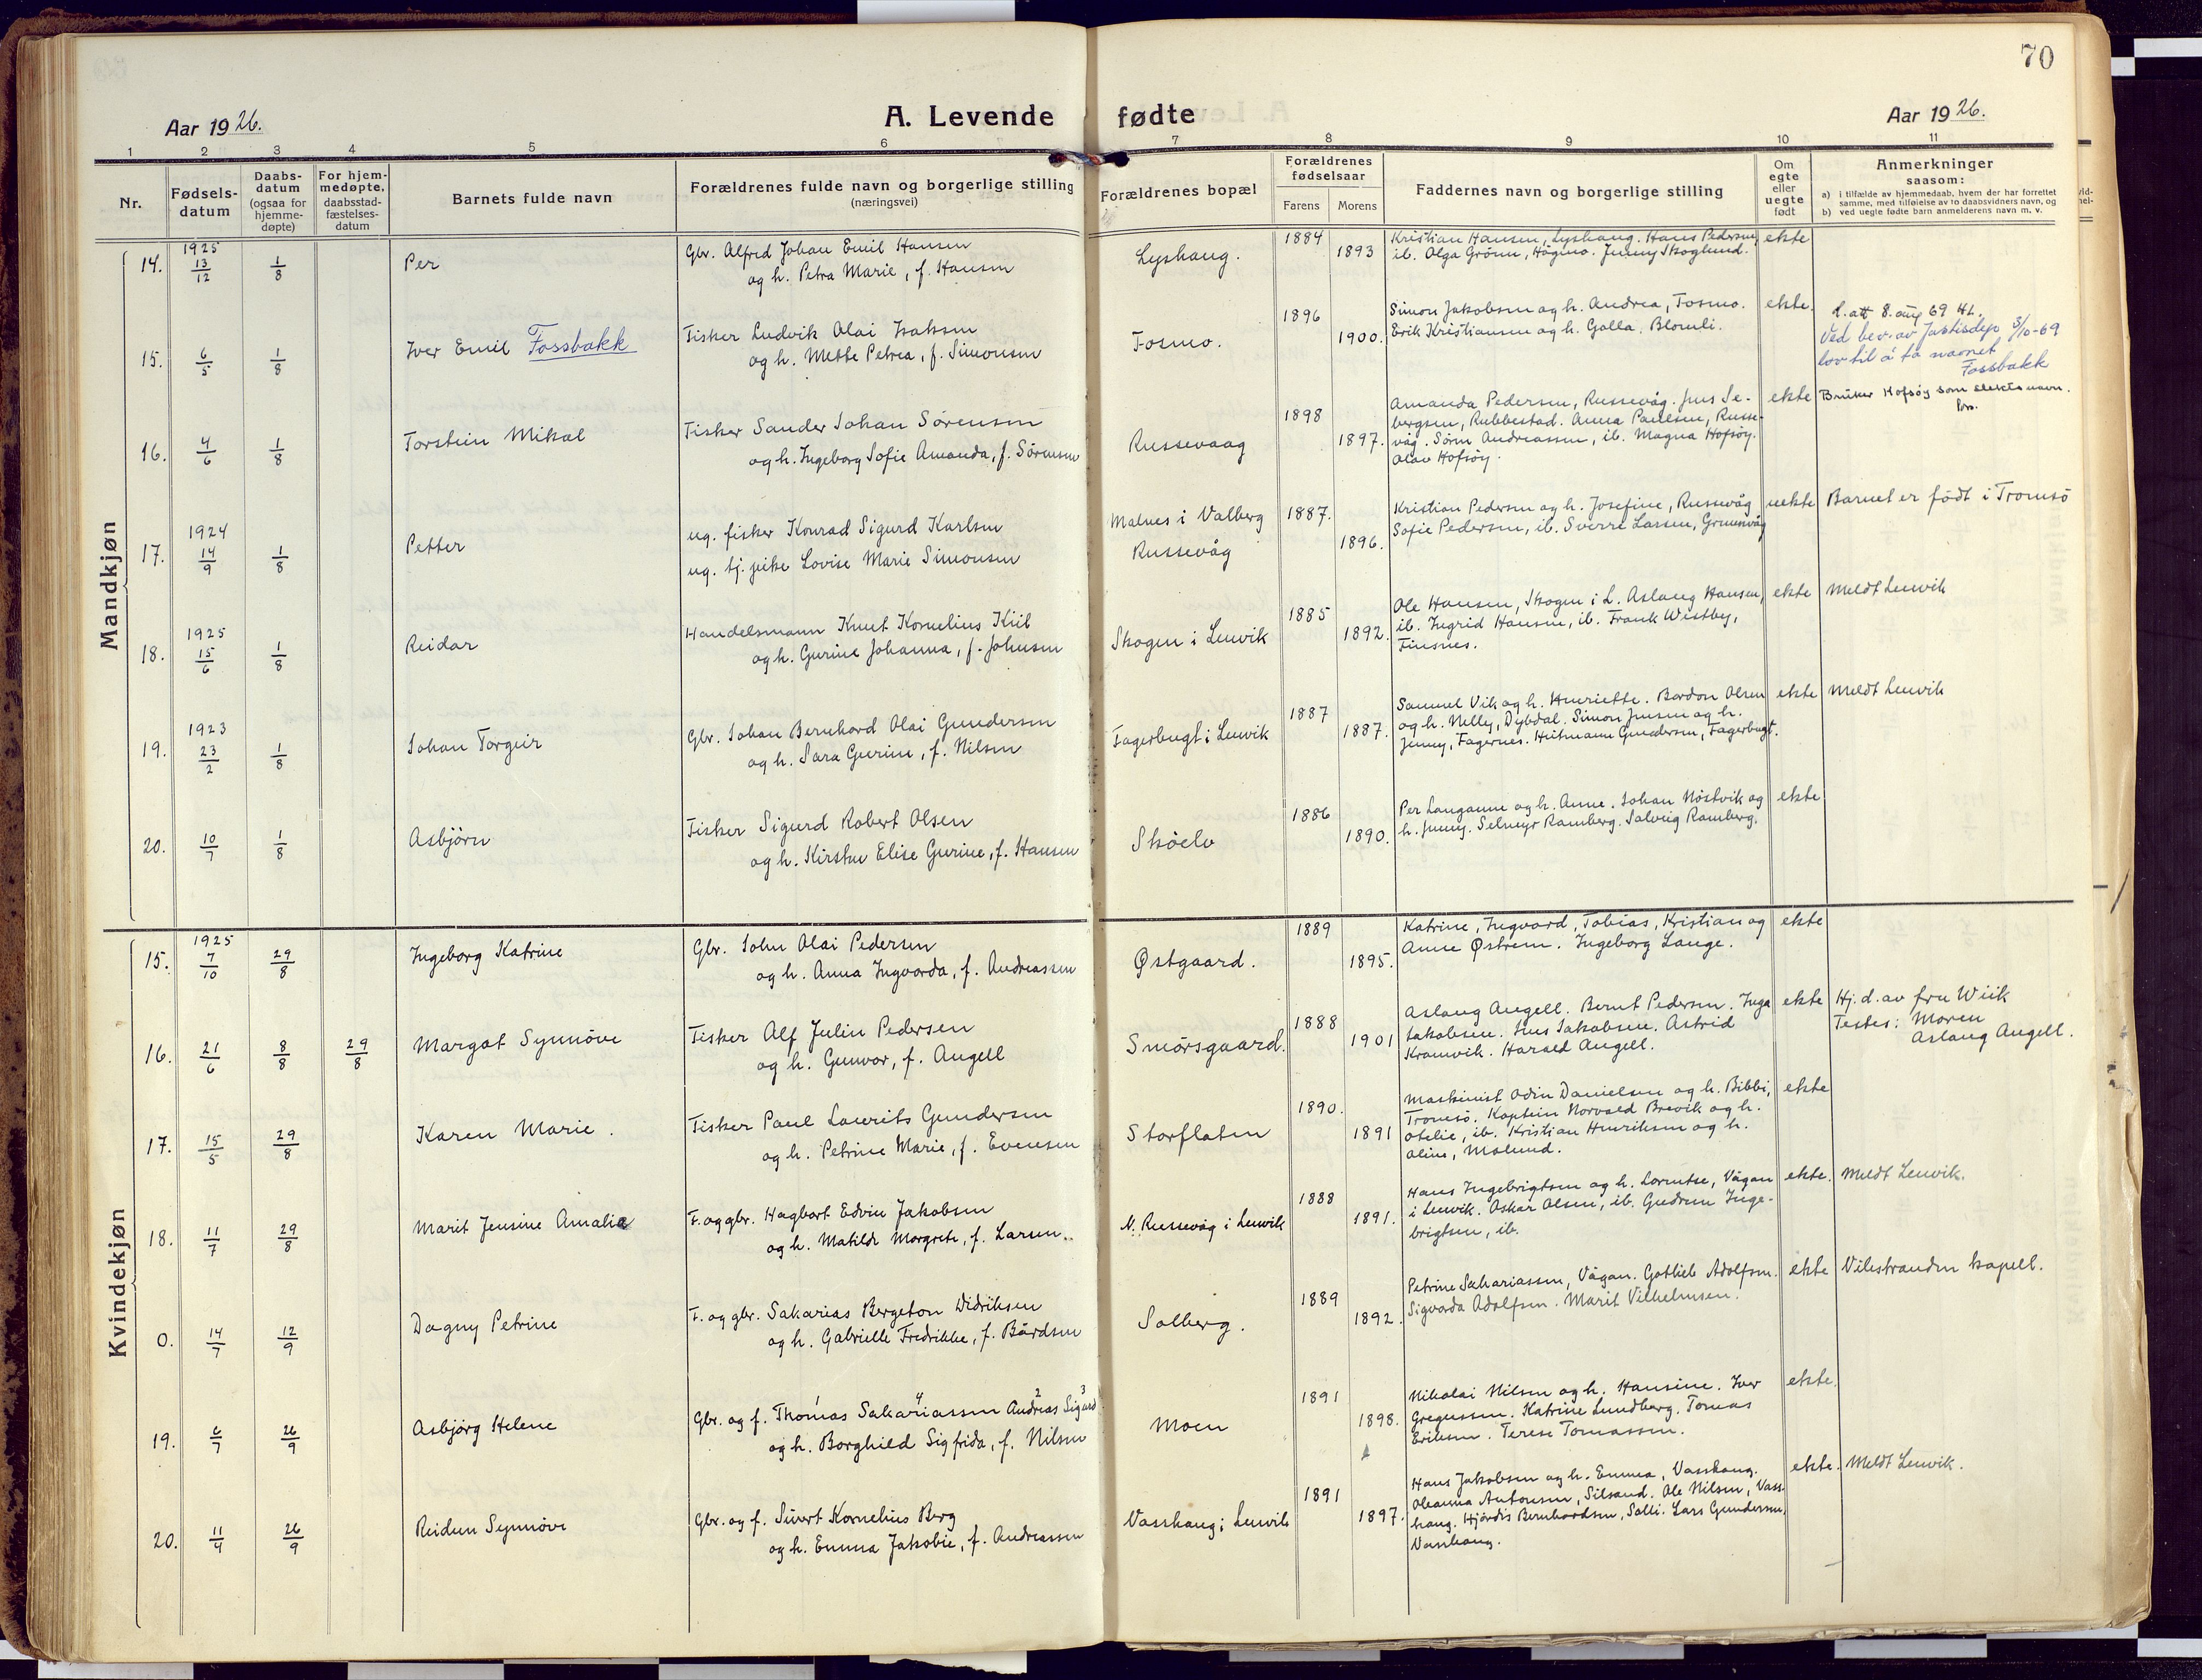 70
Aar 1926.
A. Levende fødte
Aar 1926.
1 2 3 4 5 6 7 8 9 10 11
Nr.
Fødsels-
datum
Daabs-
datum
(ogsaa for
hjemme-
døpte)
For hjem-
medøpte,
daabsstad-
fæstelses-
datum
Barnets fulde navn
Forældrenes fulde navn og borgerlige stilling
(næringsvei)
Forældrenes bopæl
Forældrenes
fødselsaar
Farens Morens
Faddernes navn og borgerlige stilling
Om
egte
eller
uegte
født
Anmerkninger
saasom:
a) i tilfælde av hjemmedaab, hvem der har forrettet
samme, med tilføielse av to daabsvidners navn, og
b) ved uegte fødte barn anmelderens navn m. v.
Mandkjøn
14. 1925 13/12 1/8 Per
Gbr. Alfred Johan Emil Hansen
og h. Petra Marie, f. Hansen
Lyshaug. 1884 1893
Kristian Hansen, Lyshaug. Hans Pedersen,
ib. Olga Grönn, Högmo. Jenny Skoglund.
ekte
15. 6/5 1/8 Iver Emil Fossbakk
Fisker Ludvik Olai Isaksen
og h. Mette Petrea, f. Simonsen
Fosmo. 1896 1900.
Simon Jakobsen og h. Andrea, Fosmo.
Erik Kristiansen og h. Golla, Blomli.
ekte.
d. att 8. aug 69
Ved bev. av Justisdep 3/10-69
lov til å ta navnet
Fossbakk
16. 4/6 1/8 Torstein Mikal
Fisker Sander Johan Sörensen
og h. Ingeborg Sofie Amanda, f. Sörensen
Russevaag 1898 1897.
Amanda Pedersen, Russevåg. Jens Se-
bergsen, Rubbestad. Anna Paulsen, Russe-
våg. Sörn Andreassen, ib. Magna Hofsöy.
Olav Hofsöy.
ekte
Bruker Hofsøy som slektsnavn.
17. 1924 14/9 1/8 Petter
ug. fisker Konrad Sigurd Karlsen
ug. tj. pike Lovise Marie Simonsen
Malnes i Valberg
Russevåg
1887. 1896.
Kristian Pedersen og h. Josefine, Russevåg
Sofie Pedersen, ib. Sverre Larsen, Grunnvåg
uekte
Barnet er födt i Tromsö
18. 1925 15/6 1/8 Reidar
Handelsmann Knut Kornelius Kiil
og h. Gurine Johanna, f. Johnsen
Skogen i Lenvik 1885 1892.
Ole Hansen, Skogen i L. Aslaug Hansen,
ib. Ingrid Hansen, ib. Frank Westby,
Finsnes.
ekte
Meldt Lenvik
19. 1923 23/2 1/8 Johan Torgeir
Gbr. Johan Bernhard Olai Gundersen
og h. Sara Gurine, f. Nilsen
Fagerbugt i Lenvik 1887 1887.
Samuel Vik og h. Henriette. Bardon Olsen
og h. Nelly, Dybdal. Simon Jensen og h.
Jenny, Fagernes. Hitmann Gundersen, Fagerbugt.
ekte
Meldt Lenvik
20. 10/7 1/8 Asbjörn
Fisker Sigurd Robert Olsen
og h. Kirsten Elise Gurine, f. Hansen
Sköelv 1886 1890.
Per Langamne og h. Anne. Johan Nöstvik og
h. Jenny. Selmer Ramberg. Solveig Ramberg.
ekte
Kvindekjøn
15. 1925 7/10 29/8 Ingeborg Katrine
Gbr. John Olai Pedersen
og h. Anna Ingvarda, f. Andreassen
Østgaard. 1889 1895.
Katrine, Ingvard, Tobias, Kristian og
Anne Østrem. Ingeborg Lange.
ekte
16. 21/6 8/8 29/8 Margot Synnöve
Fisker Alf Julin Pedersen
og h. Gunvor, f. Angell
Smörsgaard. 1888 1901
Aslaug Angell. Bernt Pedersen. Inga
Jakobsen. Jens Jakobsen. Astrid
Kramvik. Harald Angell.
ekte
Hj. d. av fru Wiik
Testes: Moren
Aslaug Angell.
17. 15/5 29/8 Karen Marie.
Fisker Paul Laurits Gundersen
og h. Petrine Marie, f. Evensen
Storflaten 1890. 1891
Maskinist Odin Danielsen og h. Bibbi,
Tromsö. Kaptein Norvald Brevik og h.
Otelie, ib. Kristian Henriksen og h.
Oline, Molund.
ekte
18. 11/7 29/8 Marit Jensine Amalie
F. og gbr. Hagbart Edvin Jakobsen
og h. Matilde Margrete, f. Larsen.
N. Russevåg i Lenvik 1888 1891.
Hans Ingebrigtsen og h. Lorentse, Vågan
i Lenvik. Oskar Olsen, ib. Gudrun Inge-
brigtsen, ib.
ekte.
Meldt Lenvik.
0. 14/7 12/9 Dagny Petrine
F. og gbr. Sakarias Bergeton Didriksen
og h. Gabrielle Fredrikke, f. Bårdsen
Solberg. 1889 1892.
Petrine Sakariassen, Vågan. Gotlieb Adolfsen.
Sigvarda Adolfsen. Marit Vilhelmsen.
ekte
Vikstranden kapell.
19. 6/7 26/9 Asbjörg Helene
1 4 2 3
Gbr. og f. Thomas Sakariassen Andreas Sigurd
og h. Borghild Sigfrida, f. Nilsen
Moen 1891 1898.
Nikolai Nilsen og h. Hansine. Iver
Gregussen. Katrine Lundberg. Tomas
Eriksen. Terese Tomassen.
ekte.
20. 11/4 26/9 Reidun Synnöve
Gbr. og f. Sivert Kornelius Berg
og h. Emma Jakobie, f. Andreassen
Vasshaug i Lenvik 1891 1897.
Hans Jakobsen og h. Emma, Vasshaug.
Oleanna Antonsen, Silsand. Ole Nilsen, Vass-
haug. Hjördis Bernhardsen, Salli. Lars Gundersen,
Vasshaug.
ekte.
Meldt Lenvik.